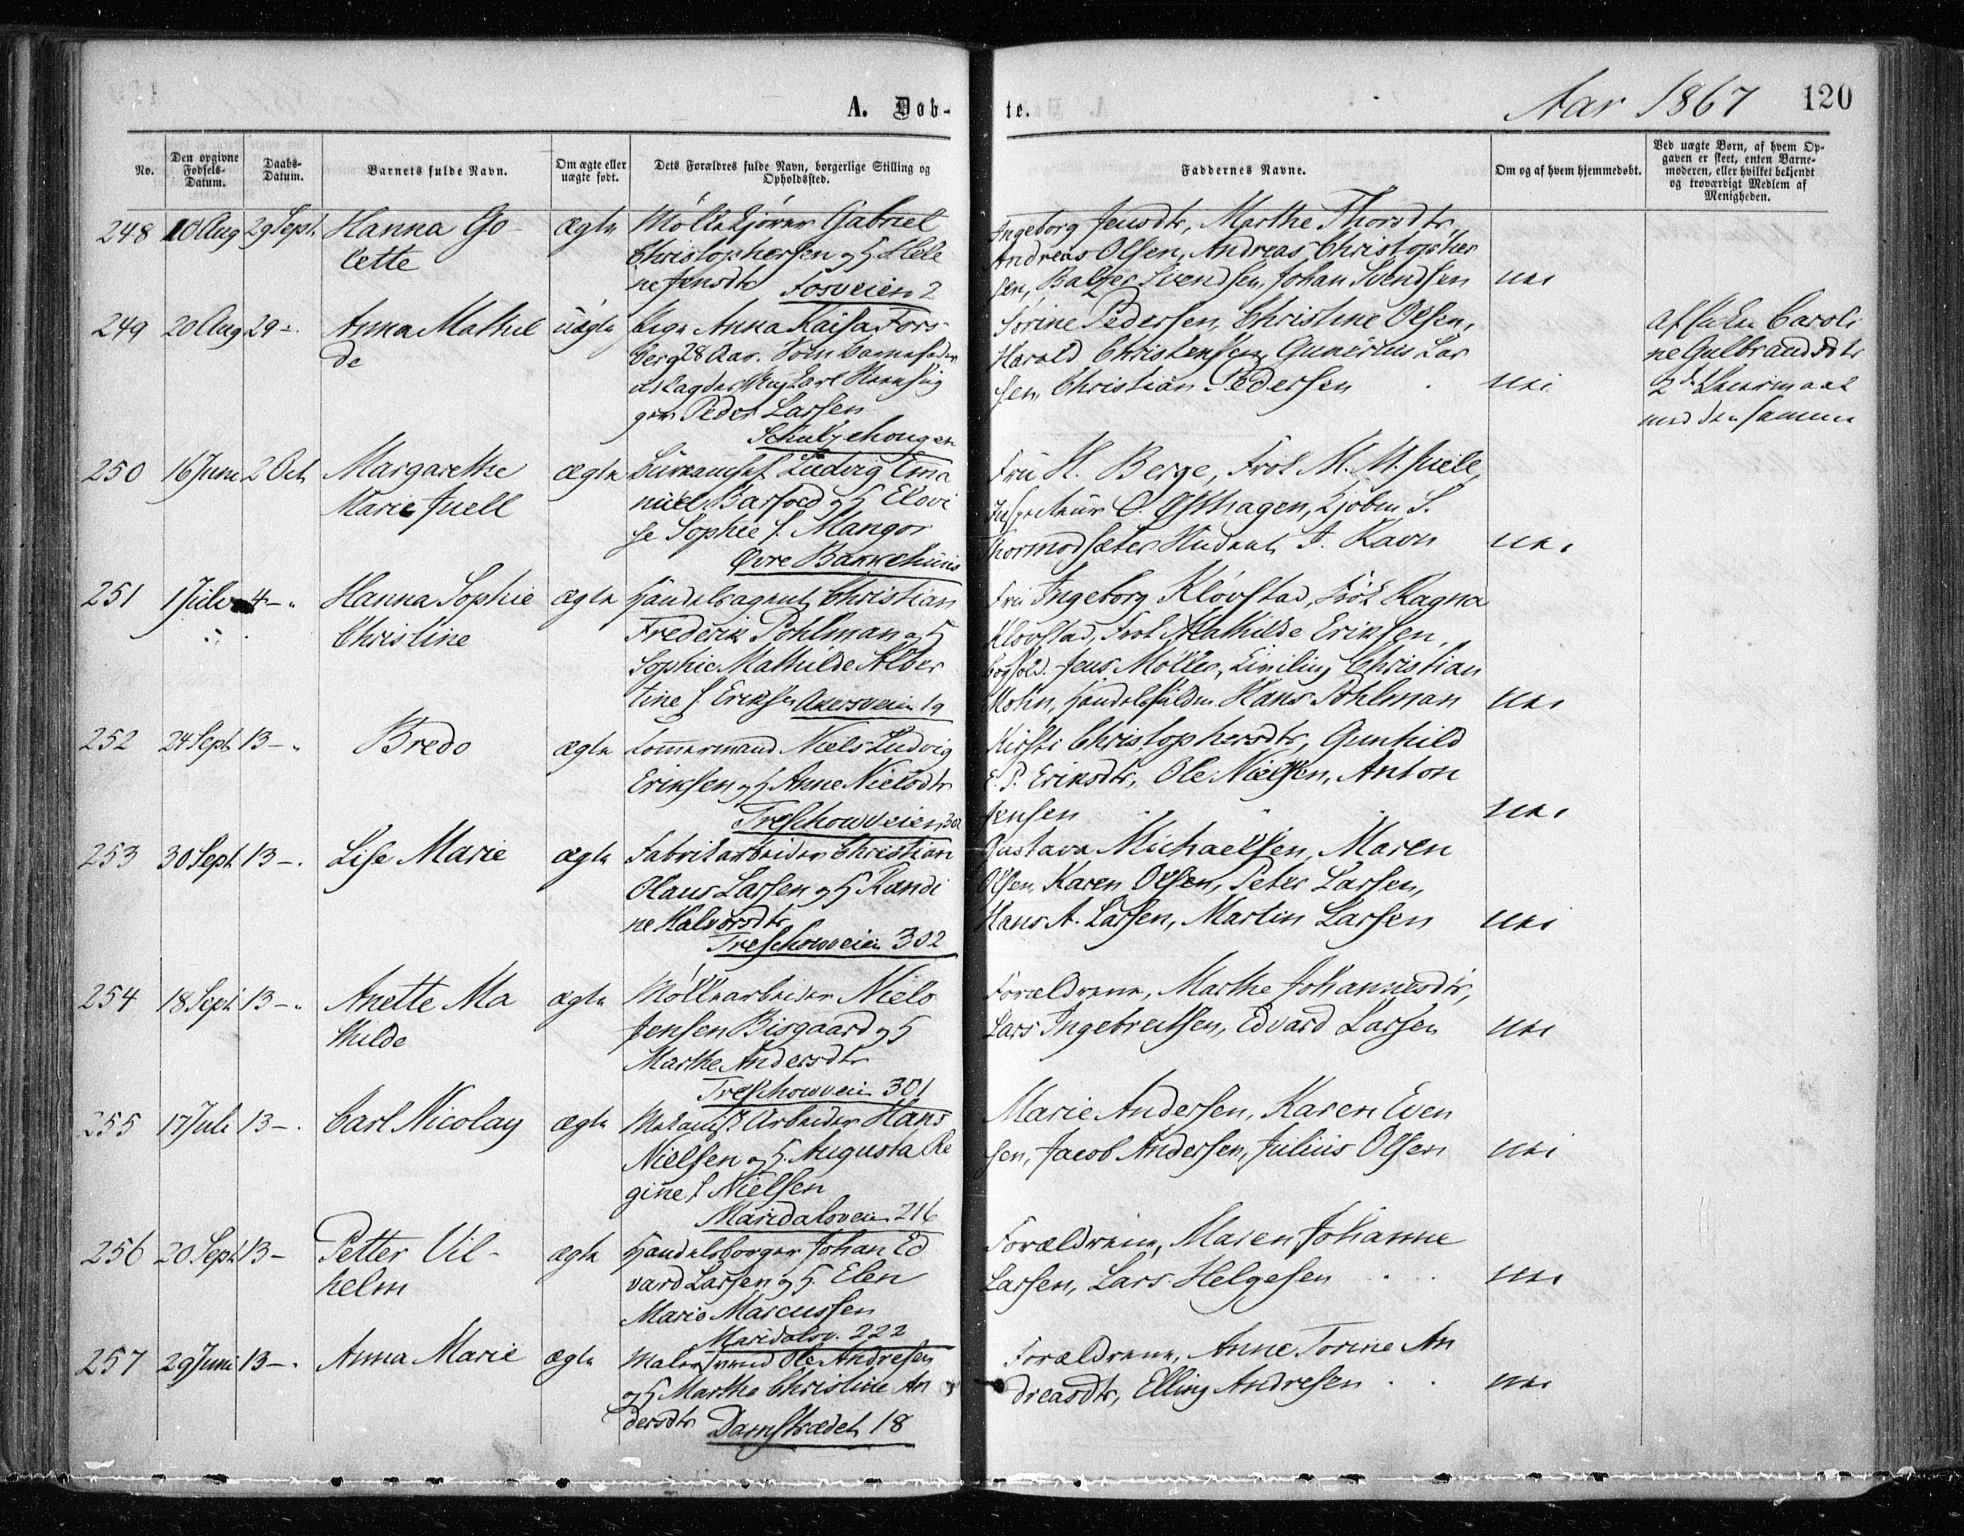 A. Døb-
te.
Aar 1867
120
No.
Den opgivne Fødsels-Datum.
Daabs-Datum.
Barnets fulde Navn.
Om ægte eller uægte født.
Dets Forældres fulde Navn, borgerlige Stilling og Opholdssted.
Faddernes Navne.
Om og af hvem hjemmedøbt.
Ved uægte Børn, af hvem Op-
gaven er skeet, enten Barne-
moderen, eller hvilket bekjendt
og troværdigt Medlem af
Menigheden.
248 10 Aug 29 Sept. Hanna Go- ægte Møllekjører Gabriel
lette Christophersen og H Hele
ne Jensdtr Fosveien 2
Ingeborg Jensdtr, Marthe Thorsdtr,
Andreas Olsen, Andreas Christopher
sen, Baltzer Svendsen, Johan Svendsen nei
249 20 Aug 29 - Anna Mathil uægte Pige Anna Kaisa Fors-
de berg 28 Aar. Som Barnefader
Ungkarl
Peder Larsen
Schultzehougen
Sørine Pedersen, Christine Olsen,
Harald Christensen, Gunerius Lar
sen, Christian Pedersen nei
Caroli
ne Gulbrandsdtr
2d Leiermaal
med den samme
250 16 Juni 2 Oct Margarethe ægte Ludvig Ema
Marie Juell nuel Barfoed og H Elovi
se Sophie f. Mangor
Øvre Bakkehuus
Fru H. Berge, Frøk M. M. Juell,
O. Østhagen, Kjøbm S.
Thormodsæter Student J. Ravn nei
251 1 Juli 4 - Hanna Sophie ægte Handelsagent Christian
Christine Frederik Pohlman og H
Sophie Mathilde Alber
tine f. Eriksen Akersveien 19
Fru Ingeborg Kløvstad, Frøk Ragna
Kløvstad, Frøk Mathilde Eriksen,
Jens Møller, Christian
Hans Pohlman nei
252 24 Sept 13 - Bredo ægte Tømmermand Niels Ludvig
Eriksen og H Anne Nielsdtr
Treschowveien 302
Kirsti Christophersdtr, Gunhild
E. P. Eriksdtr, Ole Nielsen, Anton
Jensen nei
253 30 Sept. 13 - Lise Marie ægte Fabrikarbeider Christian
Olaus Larsen og H Randi
ne Halvorsdtr
Treschowveien 302
Gustava Michaelsen, Maren
Olsen, Karen Olsen, Peter Larsen,
Hans A. Larsen, Martin Larsen nei
254 18 Sept. 13 - Anette Ma ægte Møllearbeider Niels
thilde Jensen Bisgaard og H
Marthe Andersdtr
Treschowveien 301
Forældrene, Marthe Johannesdtr,
Lars Ingebretsen, Edvard Larsen nei
255 17 Juli 13 - Carl Nicolay ægte Mekanisk Arbeider Hans
Nielsen og H. Augusta Re
gine f. Nielsen
Maridalsveien 216
Marie Andersen, Karen Even
sen, Jacob Andersen, Julius Olsen nei
256 20 Sept. 13 - Petter Vil- ægte Handelsborger Johan Ed
helm vard Larsen og H. Elen
Marie Marcussen
Maridalsv. 222
Forældrene, Maren Johanne
Larsen, Lars Helgesen nei
257 29 Juni 13 - Anna Marie ægte Malersvend Ole Andresen
og H Marthe Christine An
dersdtr Damstrædet 18
Forældrene, Anne Torine An
dreasdtr, Elling Andresen nei